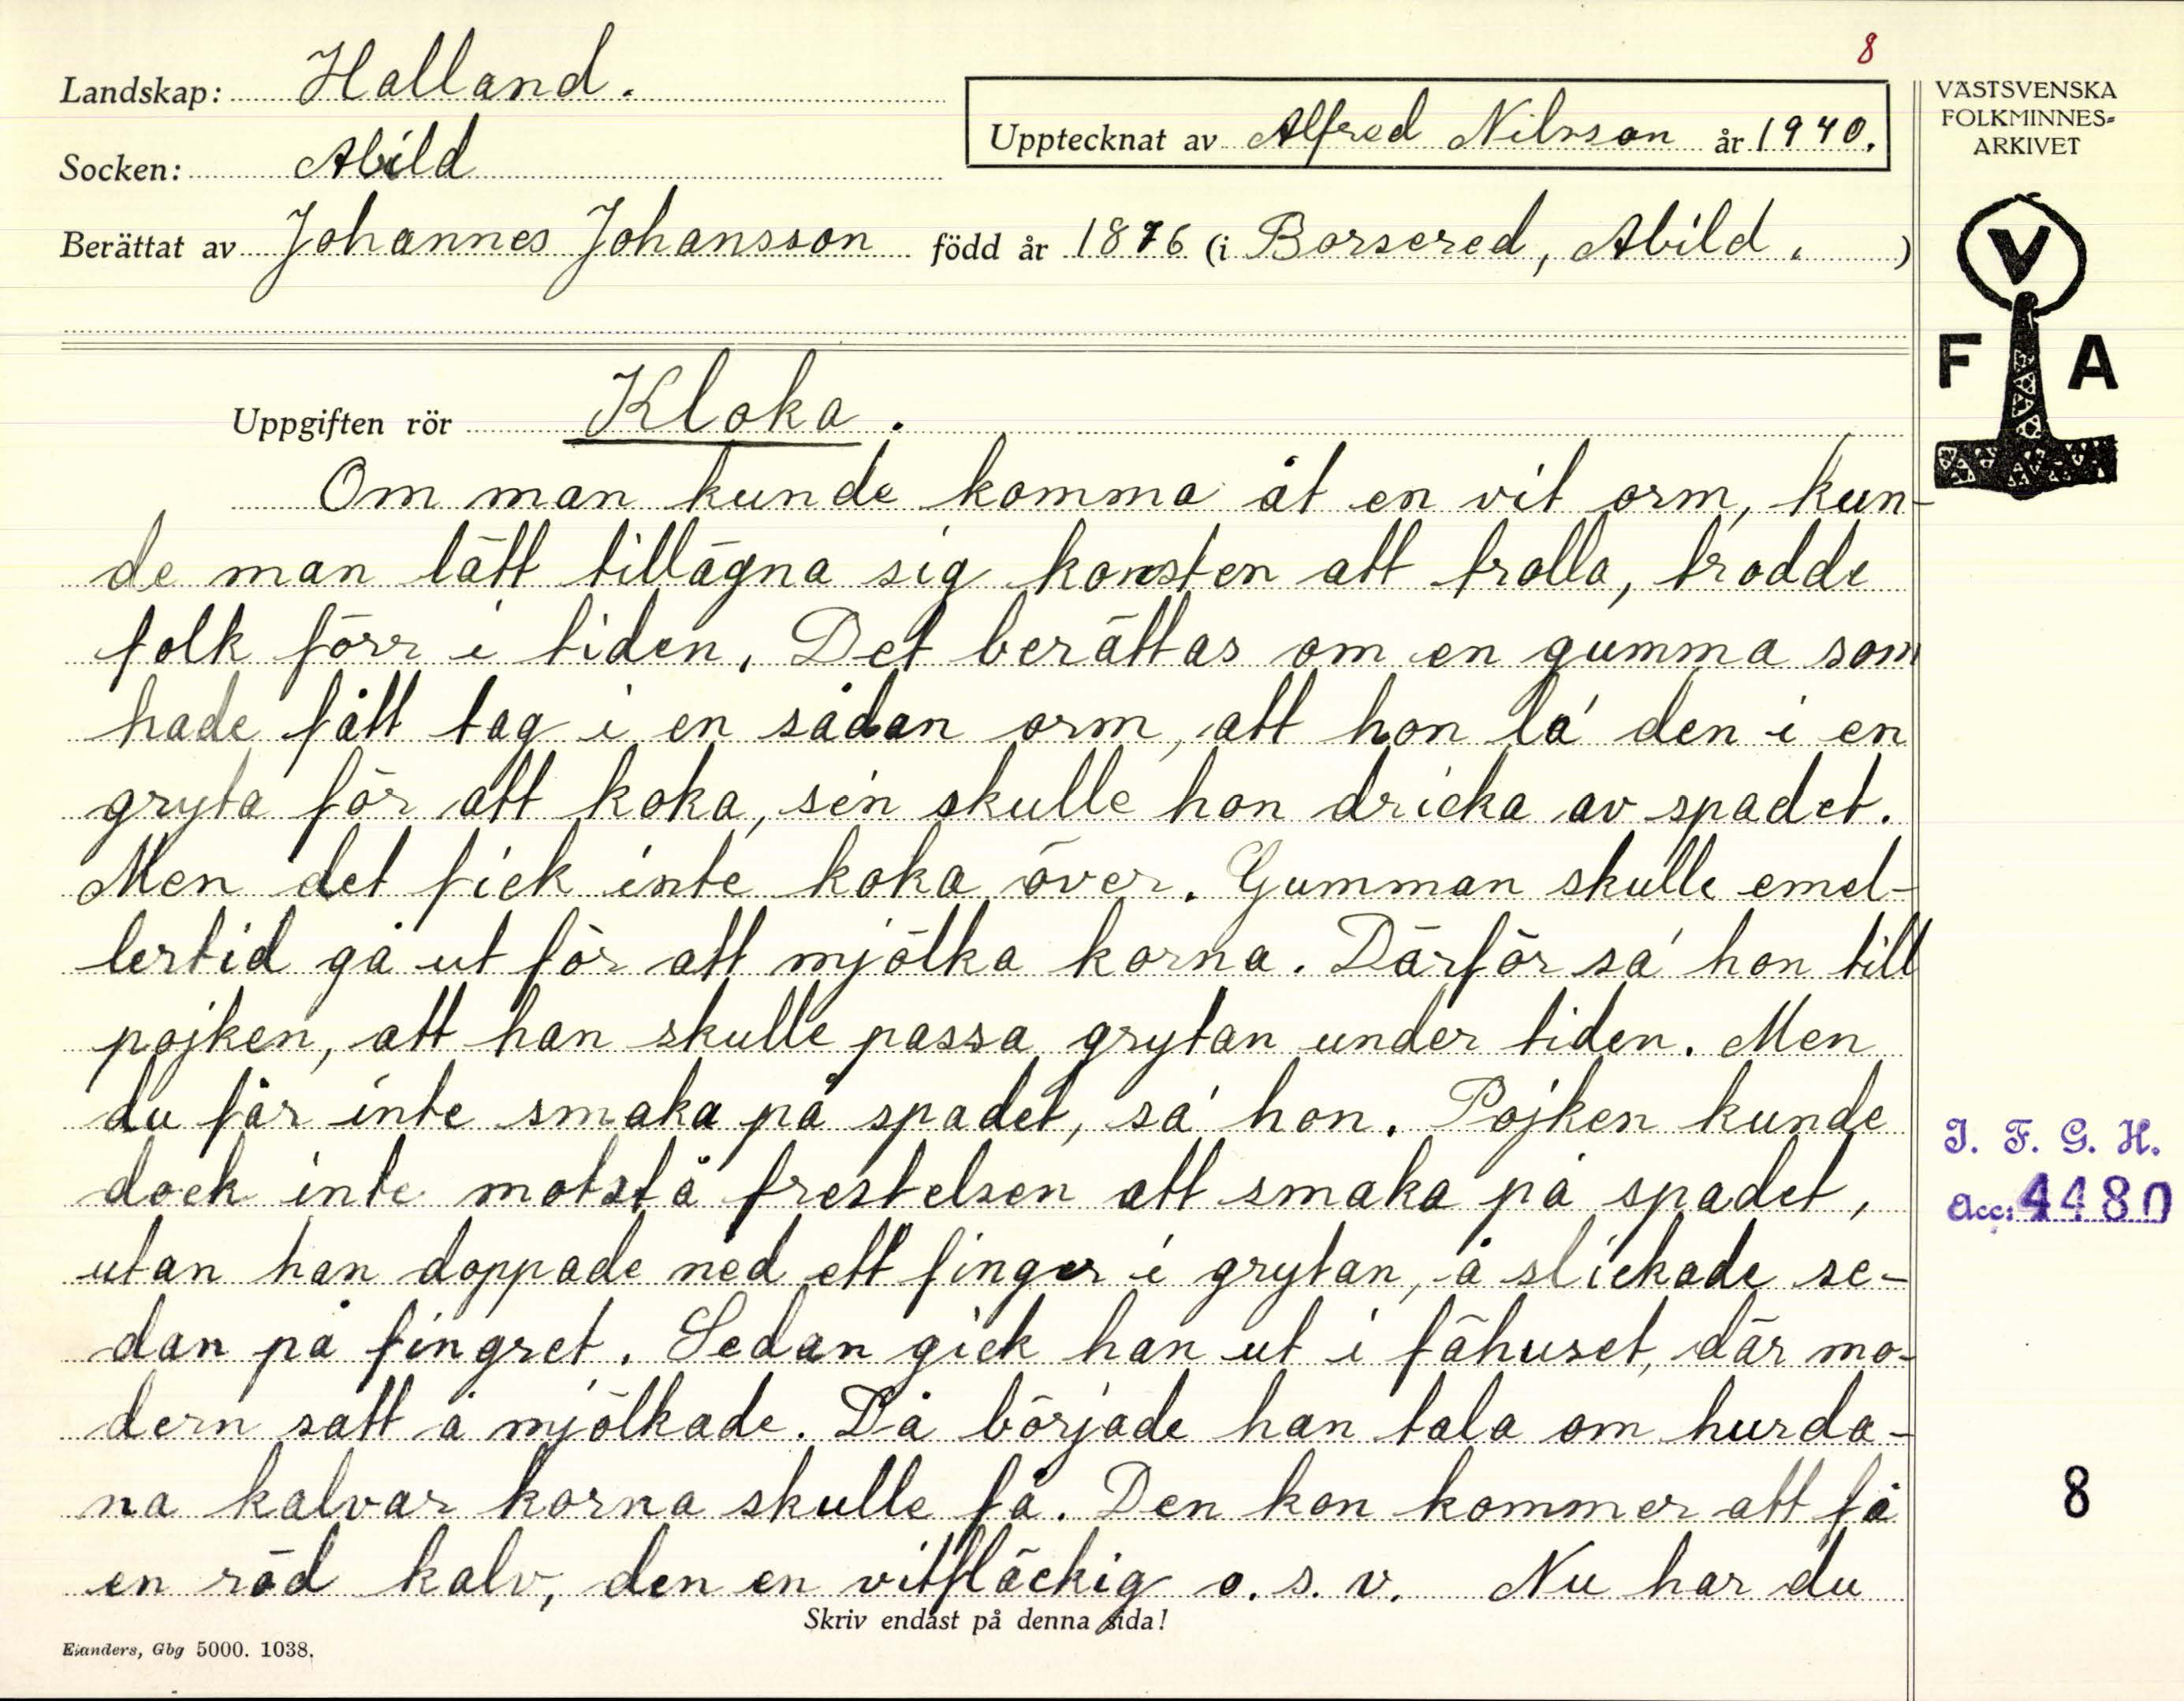 8
Landskap: Halland.
Upptecknat av Alfred Nilsson år 1940.
VÄSTSVENSKA
FOLKMINNES-
ARKIVET
Socken: Abild
Berättat av Johannes Johansson född år 1876 (i Borsered, Abild. )
V
F A
Uppgiften rör Kloka.
Om man kunde komma åt en vit orm, kun-
de man lätt tillägna sig konsten att trolla, trodde
folk förr i tiden. Det berättas om en gumma som
hade fått tag i en sådan orm, att hon la' den i en
gryta för att koka, sen skulle hon dricka av spadet.
Men det fick inte koka över. Gumman skulle emel-
lertid gå ut för att mjölka korna. Därför sa' hon till
pojken, att han skulle passa grytan under tiden. Men
du får inte smaka på spadet, sa' hon. Pojken kunde
dock inte motstå frestelsen att smaka på spadet,
utan han doppade ned ett finger i grytan, å slickade se-
dan på fingret. Sedan gick han ut i fähuset, där mo-
dern satt å mjölkade. Då började han tala om hurda-
na kalvar korna skulle få. Den kon kommer att få
en röd kalv, den en vitfläckig o.s.v. Nu har du
J. F. G. H.
Acc: 4480
8
Skriv endast på denna sida!
Elanders, Gbg 5000. 1038.